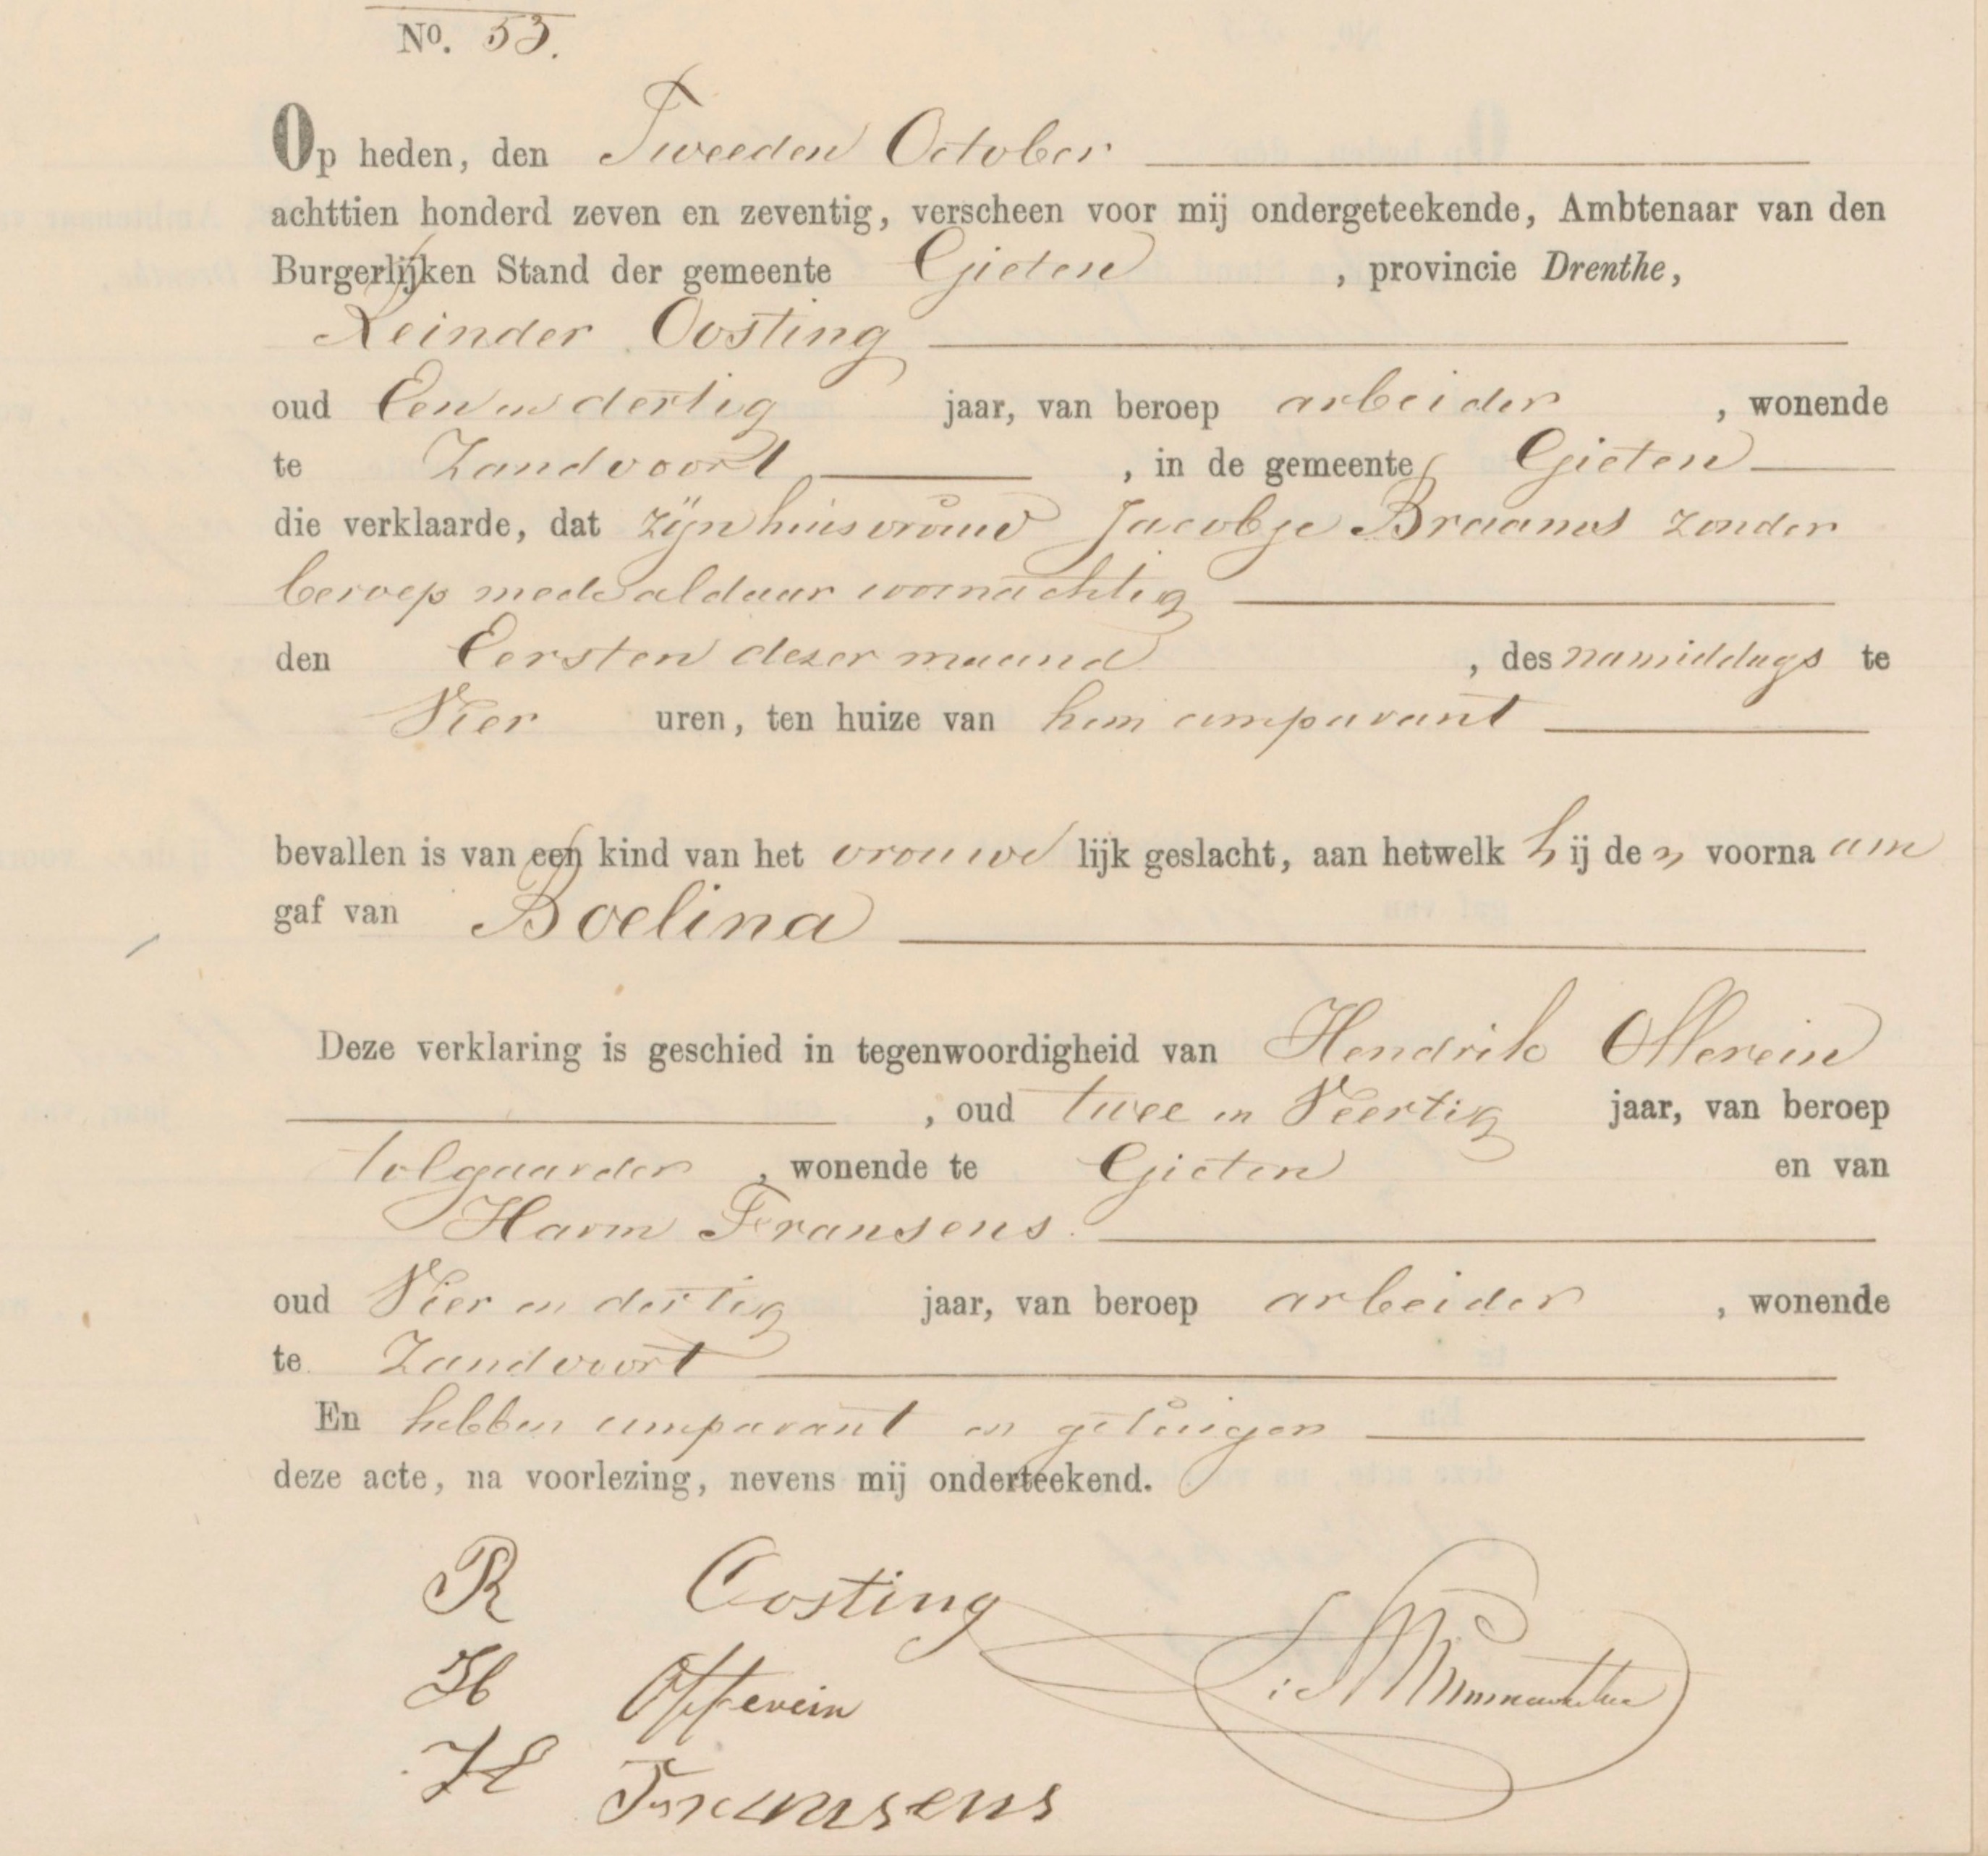 No. 53.
Op heden, den Tweeden October
achttien honderd zeven en zeventig, verscheen voor mij ondergeteekende, Ambtenaar van den
Burgerlijken Stand der gemeente Gieten, provincie Drenthe,
Reinder Oosting
oud Een en dertig jaar, van beroep arbeider, wonende
te Zandvoort, in de gemeente Gieten
die verklaarde, dat zijn huisvrouw Jacobje Braams zonder
beroep mede aldaar woonachtig
den Eersten dezer maand, des namiddags te
Vier uren, ten huize van hem comparant
bevallen is van een kind van het vrouwelijk geslacht, aan hetwelk hij den voornaam
gaf van Boelina
Deze verklaring is geschied in tegenwoordigheid van Hendrik Offerein
, oud twee en Veertig jaar, van beroep
tolgaarder, wonende te Gieten en van
Harm Fransens
oud Vier en dertig jaar, van beroep arbeider, wonende
te Zandvoort
En hebben comparant en getuigen
deze acte, na voorlezing, nevens mij onderteekend.
R Oosting
H Offerein
H Fransens